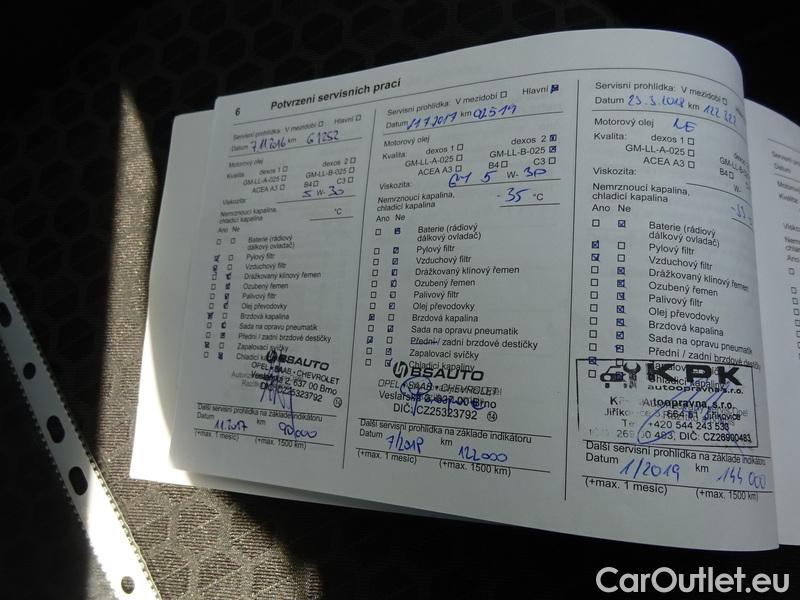 6
Potvrzení servisních prací
Servisní prohlídka: V mezidobí Hlavní
Datum 7.11.2016 km 61252
Motorový olej
Kvalita dexos 1 dexos 2
GM-LL-A-025 GM-LL-B-025
ACEA A3 B4 C3
Viskozita: 5 W- 30
Nemrznoucí kapalina,
chladicí kapalina °C
Ano Ne
Baterie (rádiový
dálkový ovladač)
Pylový filtr
Vzduchový filtr
Drážkovaný klínový řemen
Ozubený řemen
Palivový filtr
Olej převodovky
Brzdová kapalina
Sada na opravu pneumatik
Přední / zadní brzdové destičky
Zapalovací svíčky
Chladicí
BSAUTO
OPEL • SAAB • CHEVROLET
2, 637 00 Brno
CZ25323792
14
Další servisní prohlídka na základě indikátoru
Datum 11.2017 km 90000
(+max. 1 měsíc) (+max. 1500 km)
Servisní prohlídka: V mezidobí Hlavní
Datum 21.7.2017 km 92519
Motorový olej
Kvalita: dexos 1 dexos 2
GM-LL-A-025 GM-LL-B-025
ACEA A3 B4 C3
Viskozita: 5 W- 30
Nemrznoucí kapalina,
chladicí kapalina -35 °C
Ano Ne
Baterie (rádiový
dálkový ovladač)
Pylový filtr
Vzduchový filtr
Drážkovaný klínový řemen
Ozubený řemen
Palivový filtr
Olej převodovky
Brzdová kapalina
Sada na opravu pneumatik
Přední / zadní brzdové destičky
Zapalovací svíčky
Chladicí kapaliny
BSAUTO
OPEL • SAAB • CHEVROLET
Veslařská 2, 637 00 Brno
DIČ: CZ25323792
14
Další servisní prohlídka na základě indikátoru
Datum 7/2018 km 122000
(+max. 1 měsíc) (+max. 1500 km)
Servisní prohlídka: V mezidobí Hlavní
Datum 23.3.2018 km 122322
Motorový olej NE
Kvalita: dexos 1
GM-LL-A-025 GM-LL-B-025
ACEA A3 B4
Viskozita: W-
Nemrznoucí kapalina,
chladicí kapalina
Ano Ne
Baterie (rádiový
dálkový ovladač)
Pylový filtr
Vzduchový filtr
Drážkovaný klínový řemen
Ozubený řemen
Palivový filtr
Olej převodovky
Brzdová kapalina
Sada na opravu pneumatik
Přední / zadní brzdové
Zapalovací svíčky
Chladicí kapaliny
KPK
autoopravna, s.r.o.
Autoopravna, s.r.o.
664 51 Jiříkovice
+420 544 243 533
483, DIČ: CZ26900483
Další servisní prohlídka na základě indikátoru
Datum 1/2019 km 144000
(+max. 1 měsíc) (+max. 1500 km)
CarOutlet.eu